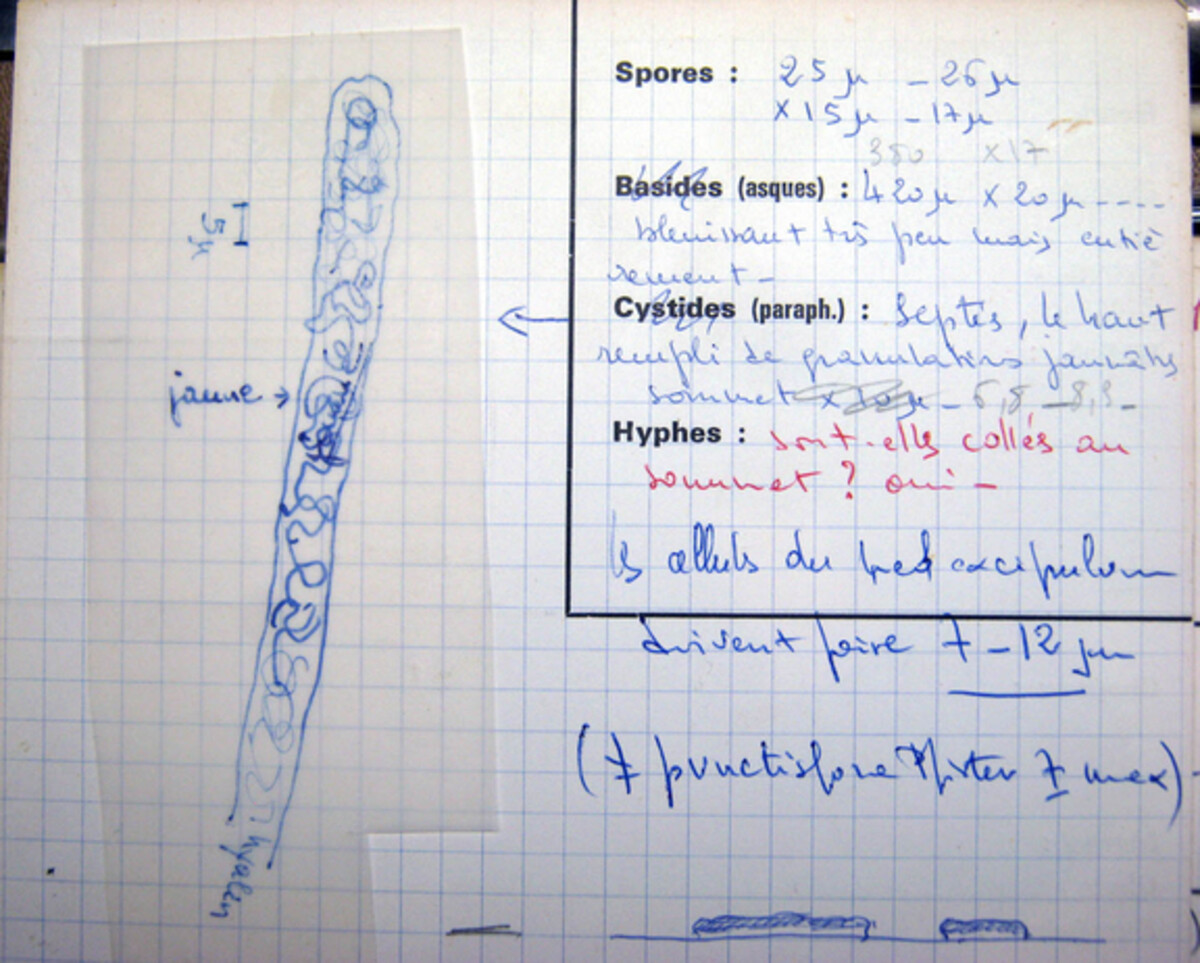 Spores : 25 µ - 26 µ
× 15 µ - 17 µ
350 × 17
Basides (asques) : 420 µ × 20 µ ----
bleuissant très peu mais entiè
rement -
Cystides (paraph.) : Septés, le haut
rempli de granulations jaunâtres
sommet × 10 µ - 6,8 - 8,3 -
Hyphes : sont-elles collés au
sommet ? oui -
ls cellules du med excipulum
doivent faire 7 - 12 µm
( ≠ punctispora Pfister 7 max )
5 µ
jaune →
hyalin